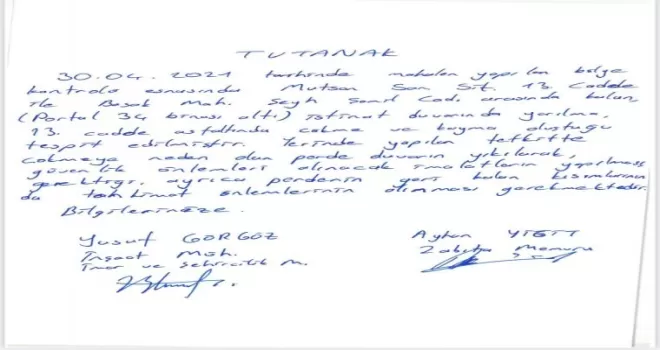 TUTANAK
30.04.2021 tarihinde mahalen yapılan bölge
kontrolü esnasında Mutsan San. Sit. 13. Cadde
ile Başak Mah. Şeyh Şamil Cad. arasında kalan
(Portal 34 binası altı) istinat duvarında yarılma,
13. cadde asfaltında çökme ve kayma oluştuğu
tespit edilmiştir. Yerinde yapılan tetkikte
çökmeye neden olan perde duvarın yıkılarak,
güvenlik önlemleri alınacak imalatların yapılması
gerektiği, ayrıca perdenin geri kalan kısımlarının
da tahkimat önlemlerinin alınması gerekmektedir.
Bilgilerinize.
Yusuf GÖRGÖZ
İnşaat Müh.
İmar ve Şehircilik M.
Ayhan YİĞİT
Zabıta Memuru